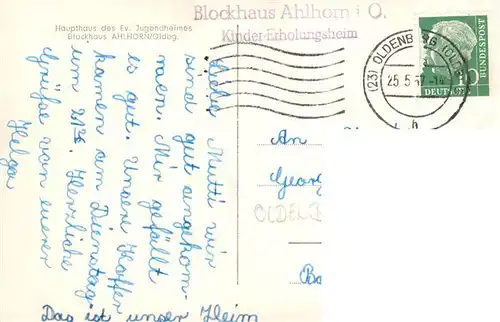 Haupthaus des Ev. Jugendheimes
Blockhaus AHLHORN/Oldbg.
Blockhaus Ahlhorn i. O.
Kinder-Erholungsheim
(23) OLDENBURG (OLDB)
25.5.57-14
h
DEUTSCHE
BUNDESPOST
10
Liebe Mutti wir
sind gut angekom-
men. Mir gefällt
es gut. Unsere Koffer
kamen am Dienstag
um Herzliche
Grüße von eurer
Helga
Das ist unser Heim
An
Georg
OLDEN